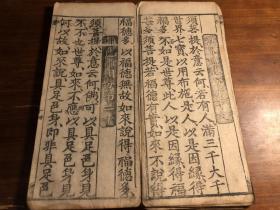 須菩提於意云何若有人滿三千大千
世界七寶以用布施是人以是因緣得
福多不如是世尊此人以是因緣得福
甚多須菩提若福德有實如來不說得
福德多以福德無故如來說得福德多
須菩提於意云何佛可以具足色身見
不不也世尊如來不應以具足色身見
何以故如來說具足色身即非具足色身